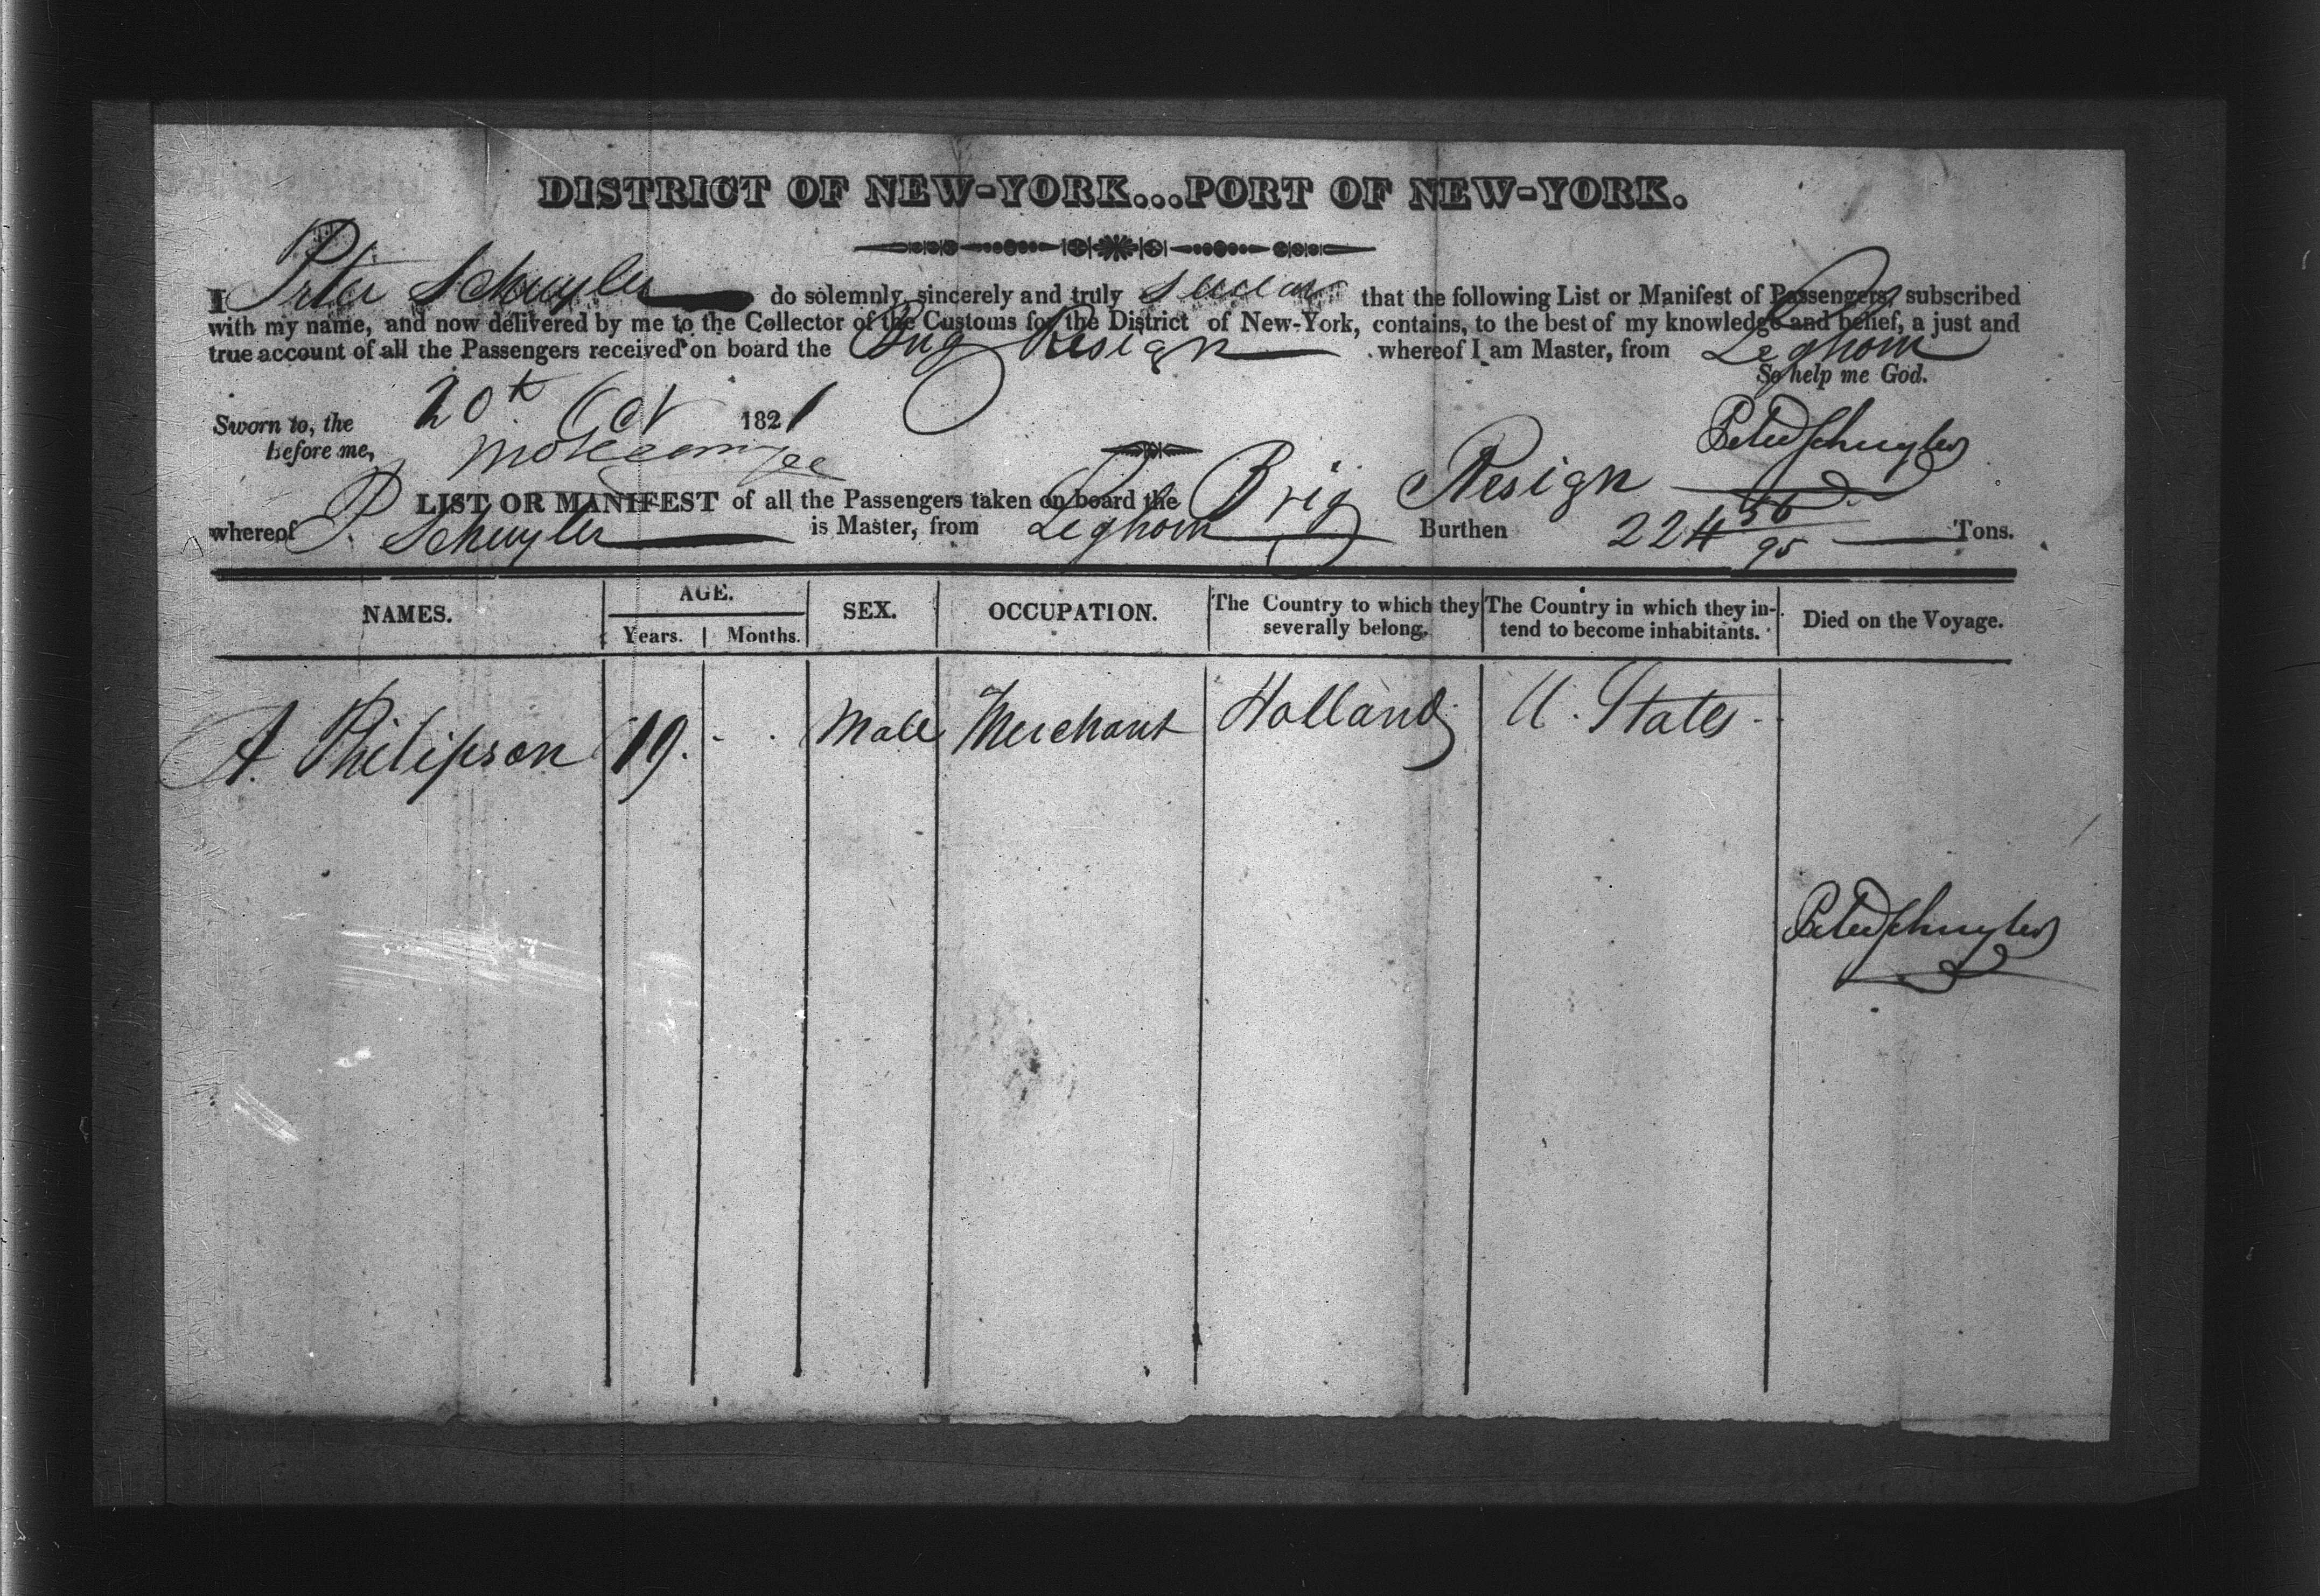 DISTRICT OF NEW-YORK...PORT OF NEW-YORK.
I Peter Schuyler do solemnly, sincerely and truly swear that the following List or Manifest of Passengers, subscribed
with my name, and now delivered by me to the Collector of the Customs for the District of New-York, contains, to the best of my knowledge and belief, a just and
true account of all the Passengers received on board the Brig Resign whereof I am Master, from Leghorn
So help me God.
Sworn to, the 20th Oct 1821
Before me,
Peter Schuyler
LIST OR MANIFEST of all the Passengers taken on board the Brig Resign
whereof P. Schuyler is Master, from Leghorn Burthen 224 56/95 Tons.
NAMES. AGE. Years. Months. SEX. OCCUPATION. The Country to which they severally belong. The Country in which they intend to become inhabitants. Died on the Voyage.
A. Philipson 19. Male Merchant Holland U. States
Peter Schuyler